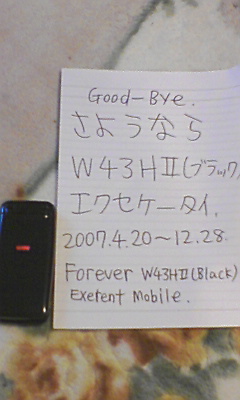 Good-Bye.
さようなら
W43HⅡ(ブラック)
エクセケータイ.
2007.4.20～12.28.
Forever W43HⅡ(Black)
Exerent Mobile.